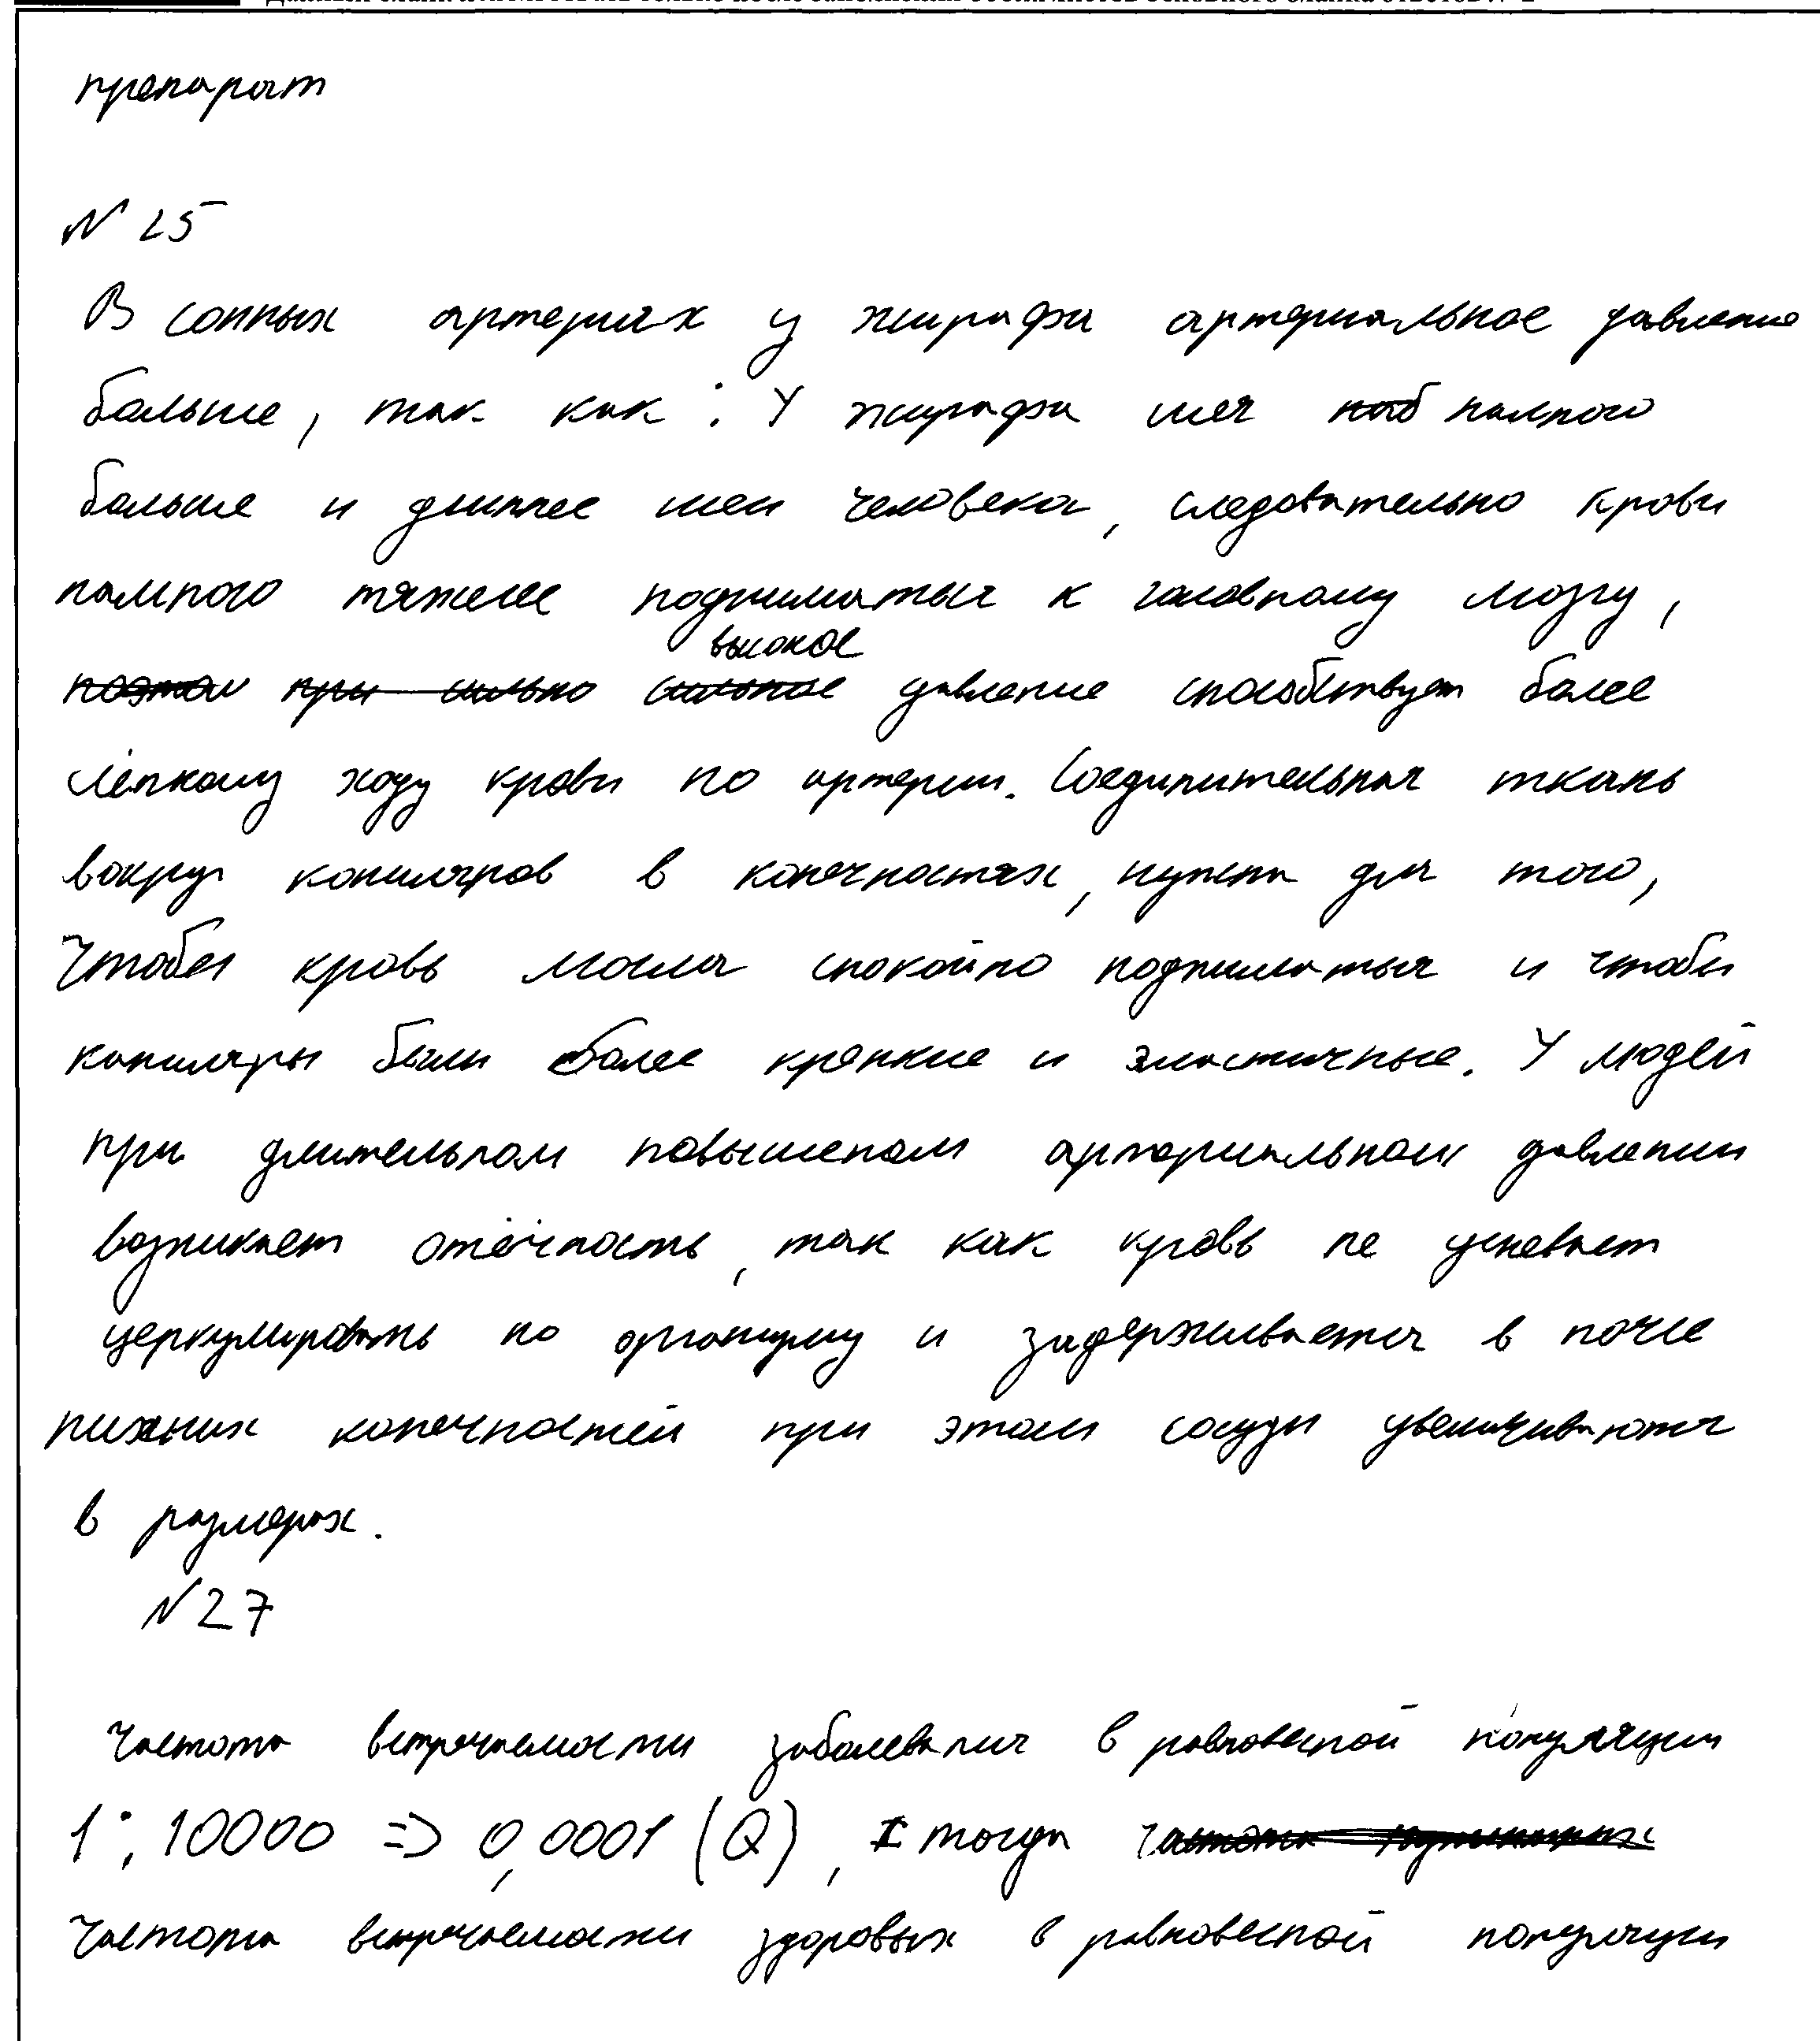 препарат
N 25
В сонных артериях у жирафа артериальное давление
больше, так как: У жирафа шея намного
больше и длиннее шеи человека, следовательно крови
намного тяжелее подниматься к головному мозгу,
высокое
давление способствует более
лёгкому ходу крови по артерии. Соединительная ткань
вокруг капиляров в конечностях, нужна для того,
чтобы кровь могла спокойно подниматься и чтобы
капиляры были более крепкие и эластичные. У людей
при длительном повышеном артериальном давлении
возникает отёчность, так как кровь не успевает
церкулировать по организму и задерживается в
нижних конечностей при этом сосуды увеличиваются
в размерах.
N27
Частота встречаемости заболевания в равновесной популяции
1:10000 => 0,0001 (Q), тогда
частота встречаемости здоровых в равновесной популяции